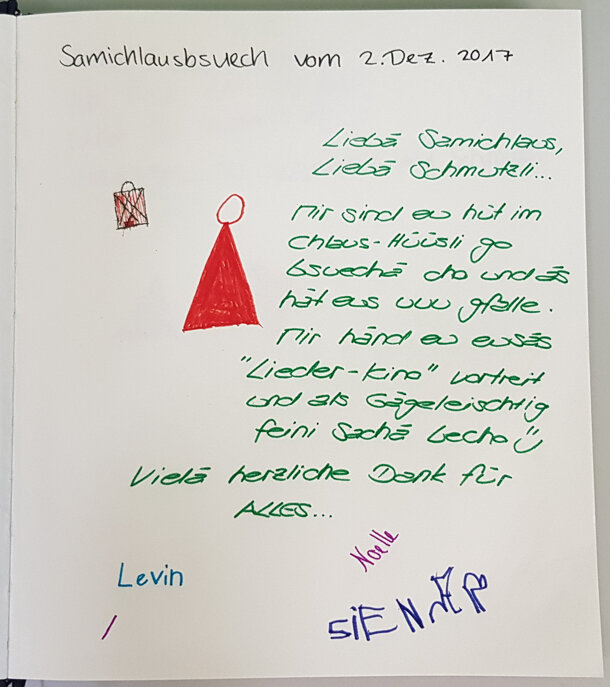 Samichlausbsuech vom 2. Dez. 2017
Liebä Samichlaus,
Liebä Schmutzli...
Mir sind eu hüt im
Chlaus-Hüüsli go
bsuechä cho und äs
hät eus uuu gfalle.
Mir händ eu eusäs
"Lieder-Kino" vortreit
und als Gägeleischtig
feini Sachä becho
Vielä herzliche Dank für
ALLES...
Noelle
Levin